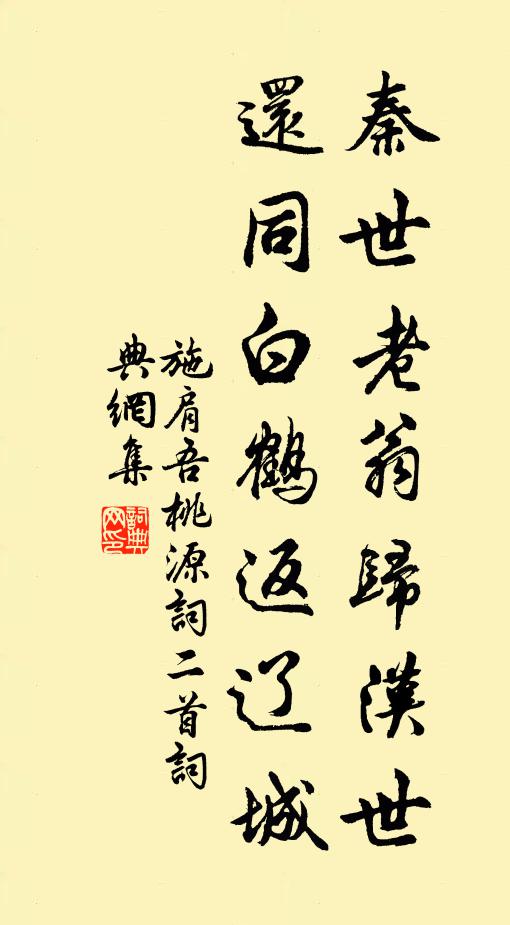 秦世老翁歸漢世
還同白鶴返辽城
施肩吾桃源詞二首詞
典網集
詞典
网印